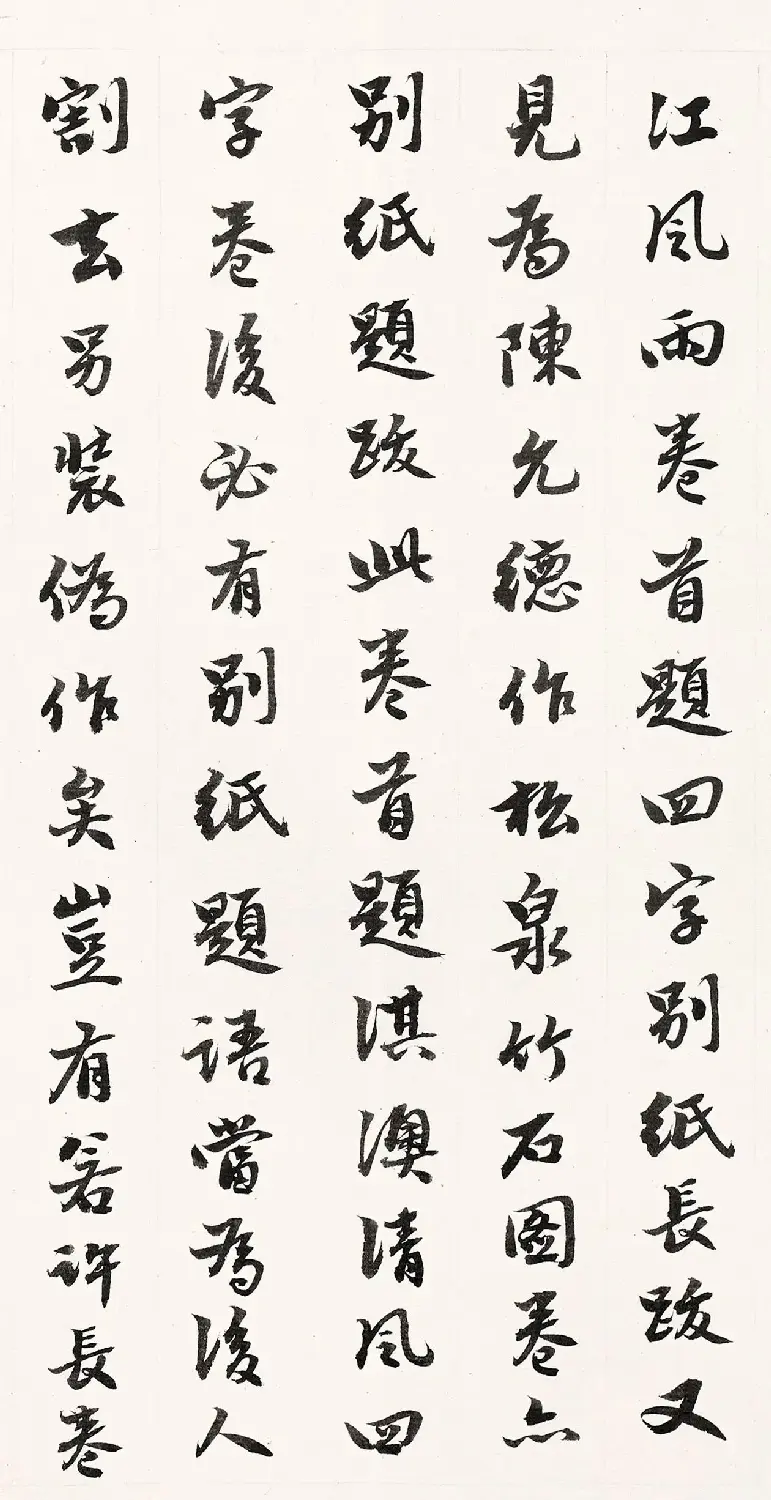 江風雨卷首題四字別紙長跋又
見為陳允德作松泉竹石圖卷亦
別紙題跋此卷首題淇澳清風四
字卷後必有別紙題語當為後人
割去另裝偽作矣豈有若許長卷